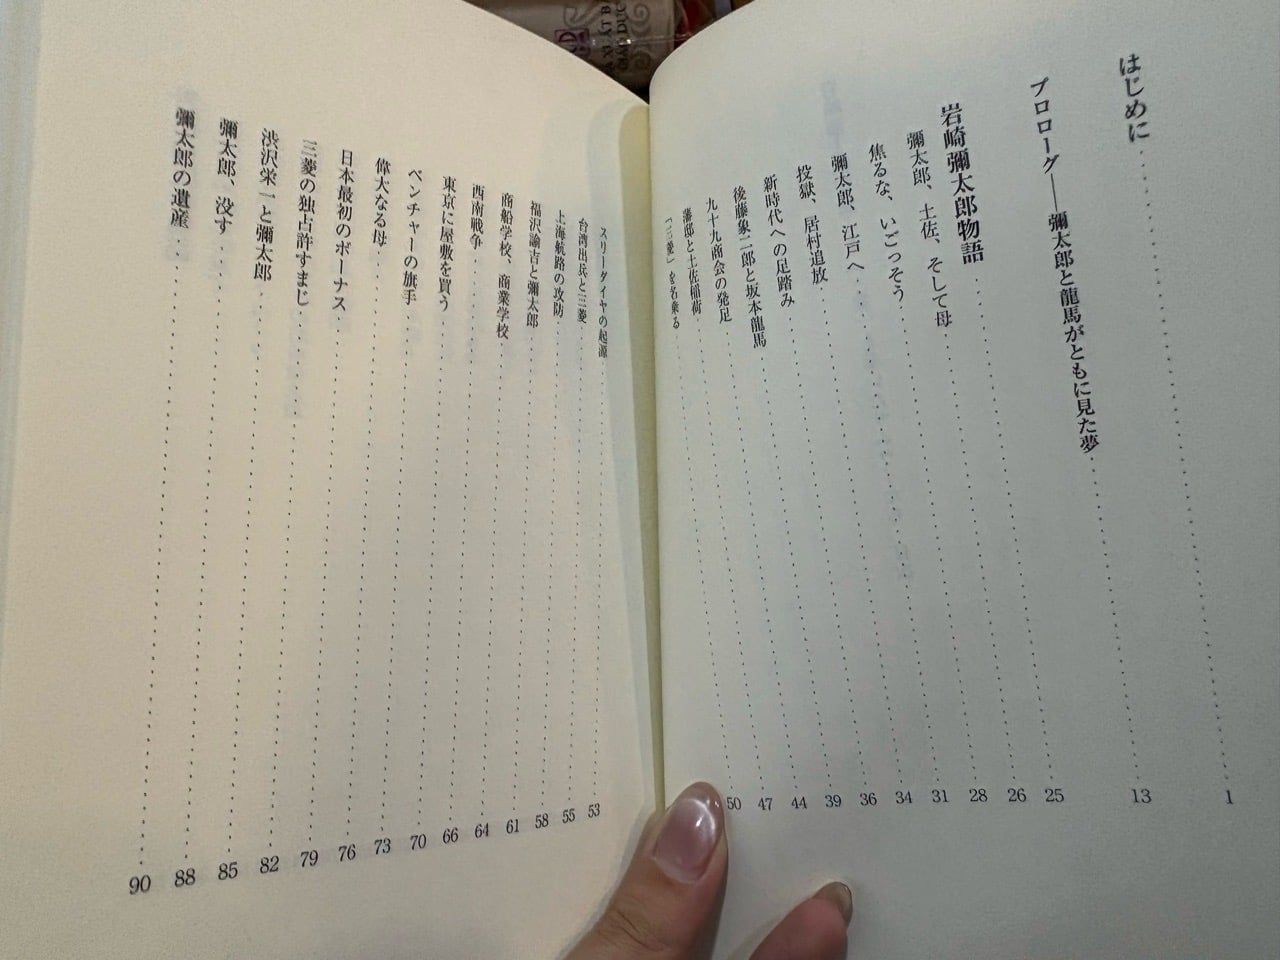 はじめに 1
プロローグ――彌太郎と龍馬がともに見た夢 13
岩崎彌太郎物語 25
彌太郎、土佐、そして母 26
焦るな、いごっそう 28
彌太郎、江戸へ 31
投獄、居村追放 34
新時代への足踏み 36
後藤象二郎と坂本龍馬 39
九十九商会の発足 44
藩邸と土佐稲荷 47
「三菱」を名乗る 50
スリーダイヤの起源 53
台湾出兵と三菱 55
上海航路の攻防 58
福沢諭吉と彌太郎 61
商船学校、商業学校 64
西南戦争 66
東京に屋敷を買う 70
ベンチャーの旗手 73
偉大なる母 76
日本最初のボーナス 79
三菱の独占許すまじ 82
渋沢栄一と彌太郎 85
彌太郎、没す 88
彌太郎の遺産 90